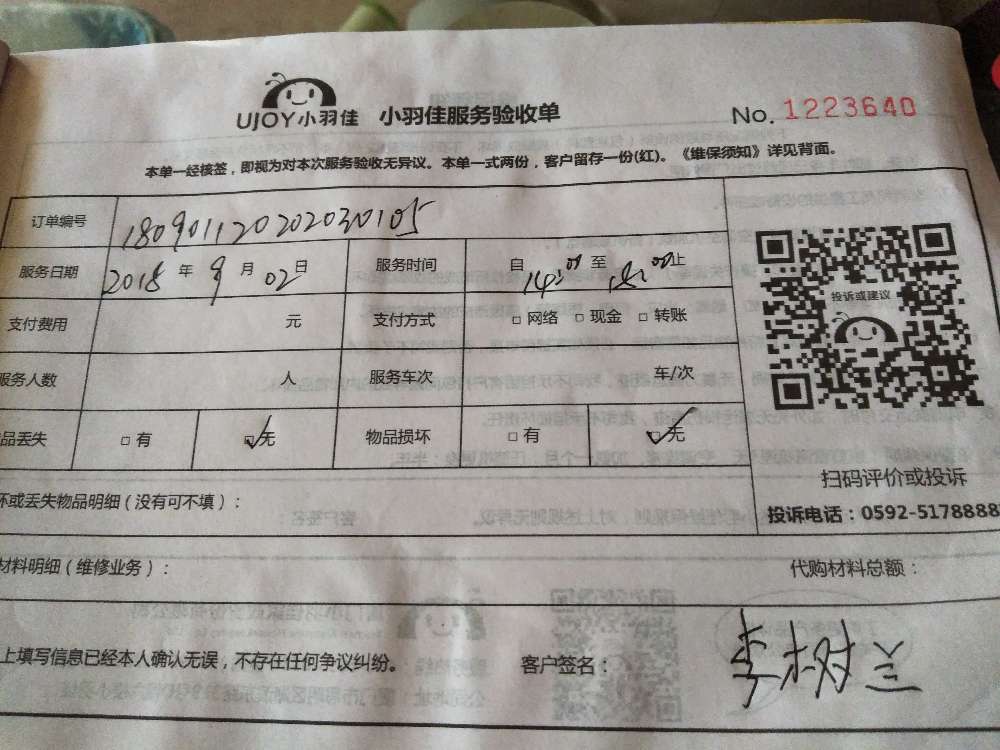 UJOY小羽佳 小羽佳服务验收单 No. 1223640
本单一经核签，即视为对本次服务验收无异议。本单一式两份，客户留存一份(红)。《维保须知》详见背面。
订单编号 180901120202030105
服务日期 2018 年 9 月 02 日 服务时间 自 14:00 至 18:00 止
投诉或建议
支付费用 元 支付方式 □ 网络 □ 现金 □ 转账
服务人数 人 服务车次 车/次
品丢失 □ 有 ☑无 物品损坏 □ 有 ☑无
扫码评价或投诉
坏或丢失物品明细（没有可不填）：
投诉电话：0592-5178888
材料明细（维修业务）： 代购材料总额：
上填写信息已经本人确认无误，不存在任何争议纠纷。 客户签名： 李树兰